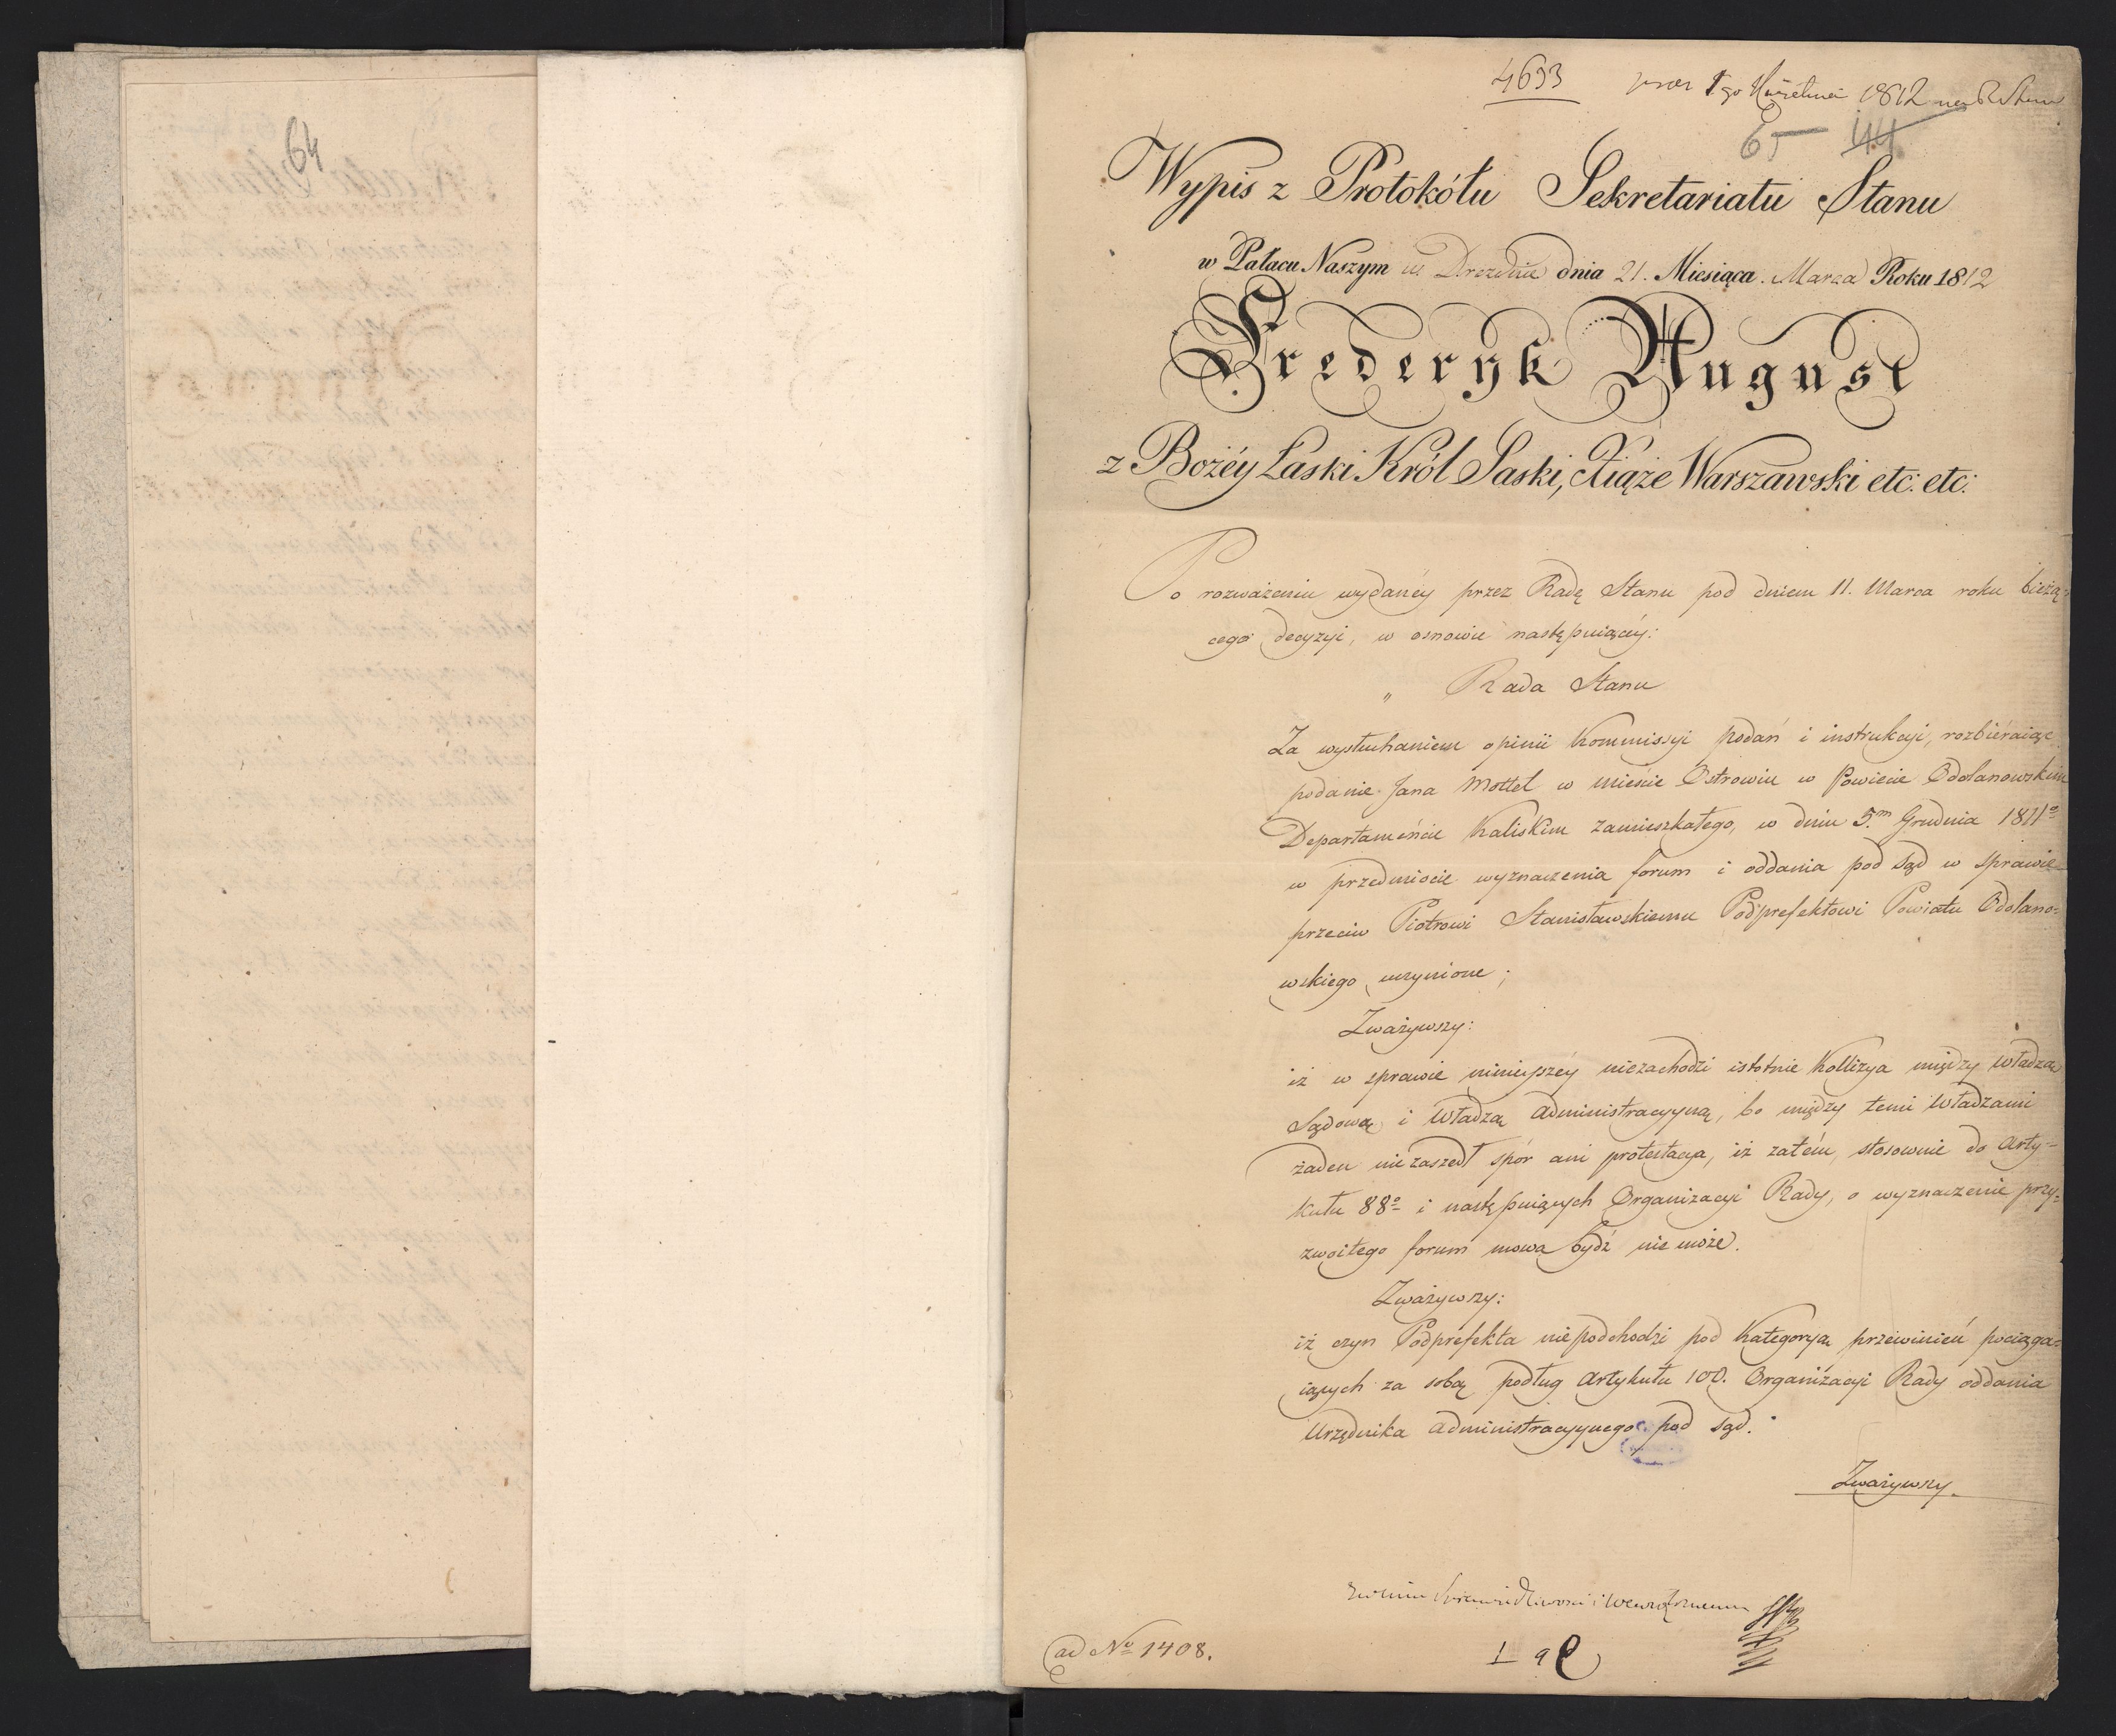 64
4693
1go Kwietnia 1812 na R. Stanu
65 44
Wypis z Protokółu Sekretariatu Stanu
w Pałacu Naszym w Dreznie dnia 21. Miesiąca Marca Roku 1812
Frederyk August
z Bożéy Łaski Król Saski, Xiąże Warszawski etc: etc:
Po rozważeniu wydanéy przez Radę Stanu pod dniem 11. Marca roku bieżą-
cego decyzyi, w osnowie następuiącéy:
„ Rada Stanu
Za wysłuchaniem opinii Kommissyi podań i instrukcyi, rozbiéraiąc
podanie Jana Mottel w mieście Ostrowiu w Powiecie Odolanowskim
Departamencie Kaliskim zamieszkałego, w dniu 5.m Grudnia 1811o
w przedmiocie wyznaczenia forum i oddania pod sąd w sprawie
przeciw Piotrowi Stanisławskiemu Podprefektowi Powiatu Odolano-
wskiego uczynione;
Zważywszy:
iż w sprawie ninieyszéy niezachodzi istotnie Kollizya między Władzą
Sądową i Władzą Administracyyną, bo między temi Władzami
żaden nie zaszedł spór ani protestacya, iż zatém, stosownie do Arty-
kułu 88o i następuiących Organizacyi Rady, o wyznaczenie przy-
zwoitego forum mowa bydź nie może.
Zważywszy:
iż czyn Podprefekta niepodchodzi pod Kategoryą przewinień pociąga-
iących za sobą podług Artykułu 100. Organizacyi Rady oddania
Urzędnika Administracyynego pod sąd.
Zważywszy.
Sprawiedliwości i Wewnętrznemu
ad No 1408.